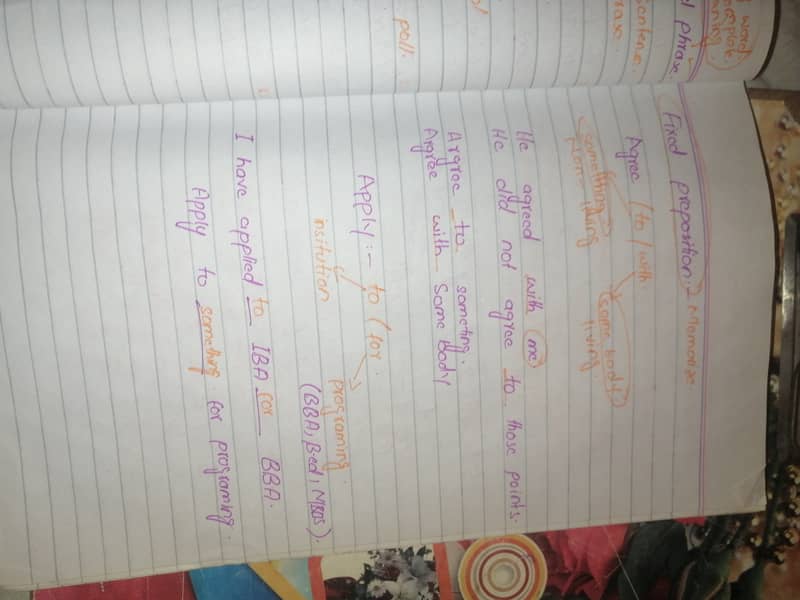 word
complete
phrase.
sentence.
poll.
Fixed preposition:- Memorise.
Agree (to / with
(something) (some body)
Non-living living.
He agreed with me
He did not agree to those points.
Argree to someting.
Argree with Some Body
Apply:- to / for.
insitution programing.
(BBA, B.ed, MBBS).
I have applied to IBA for BBA.
Apply to something for programing.